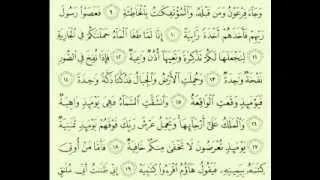 وَجَاءَ فِرْعَوْنُ وَمَن قَبْلَهُ وَالْمُؤْتَفِكَتُ بِالْخَاطِئَةِ ٩ فَعَصَوْا رَسُولَ
رَبِّهِمْ فَأَخَذَهُمْ أَخْذَةً رَّابِيَةً ١٠ إِنَّا لَمَّا طَغَا الْمَاءُ حَمَلْنَكُمْ فِي الْجَارِيَةِ
١١ لِنَجْعَلَهَا لَكُمْ تَذْكِرَةً وَتَعِيَهَا أُذُنٌ وَعِيَةٌ ١٢ فَإِذَا نُفِخَ فِي الصُّورِ
نَفْخَةٌ وَحِدَةٌ ١٣ وَحُمِلَتِ الْأَرْضُ وَالْجِبَالُ فَدُكَّتَا دَكَّةً وَحِدَةً ١٤
فَيَوْمَئِذٍ وَقَعَتِ الْوَاقِعَةُ ١٥ وَانشَقَّتِ السَّمَاءُ فَهِيَ يَوْمَئِذٍ وَاهِيَةٌ
١٦ وَالْمَلَكُ عَلَى أَرْجَائِهَا وَيَحْمِلُ عَرْشَ رَبِّكَ فَوْقَهُمْ يَوْمَئِذٍ ثَمَنِيَةٌ
١٧ يَوْمَئِذٍ تُعْرَضُونَ لَا تَخْفَى مِنكُمْ خَافِيَةٌ ١٨ فَأَمَّا مَنْ أُوتِيَ
كِتَبَهُ بِيَمِينِهِ فَيَقُولُ هَاؤُمُ اقْرَءُوا كِتَبِيَهْ ١٩ إِنِّي ظَنَنتُ أَنِّي مُلَقٍ